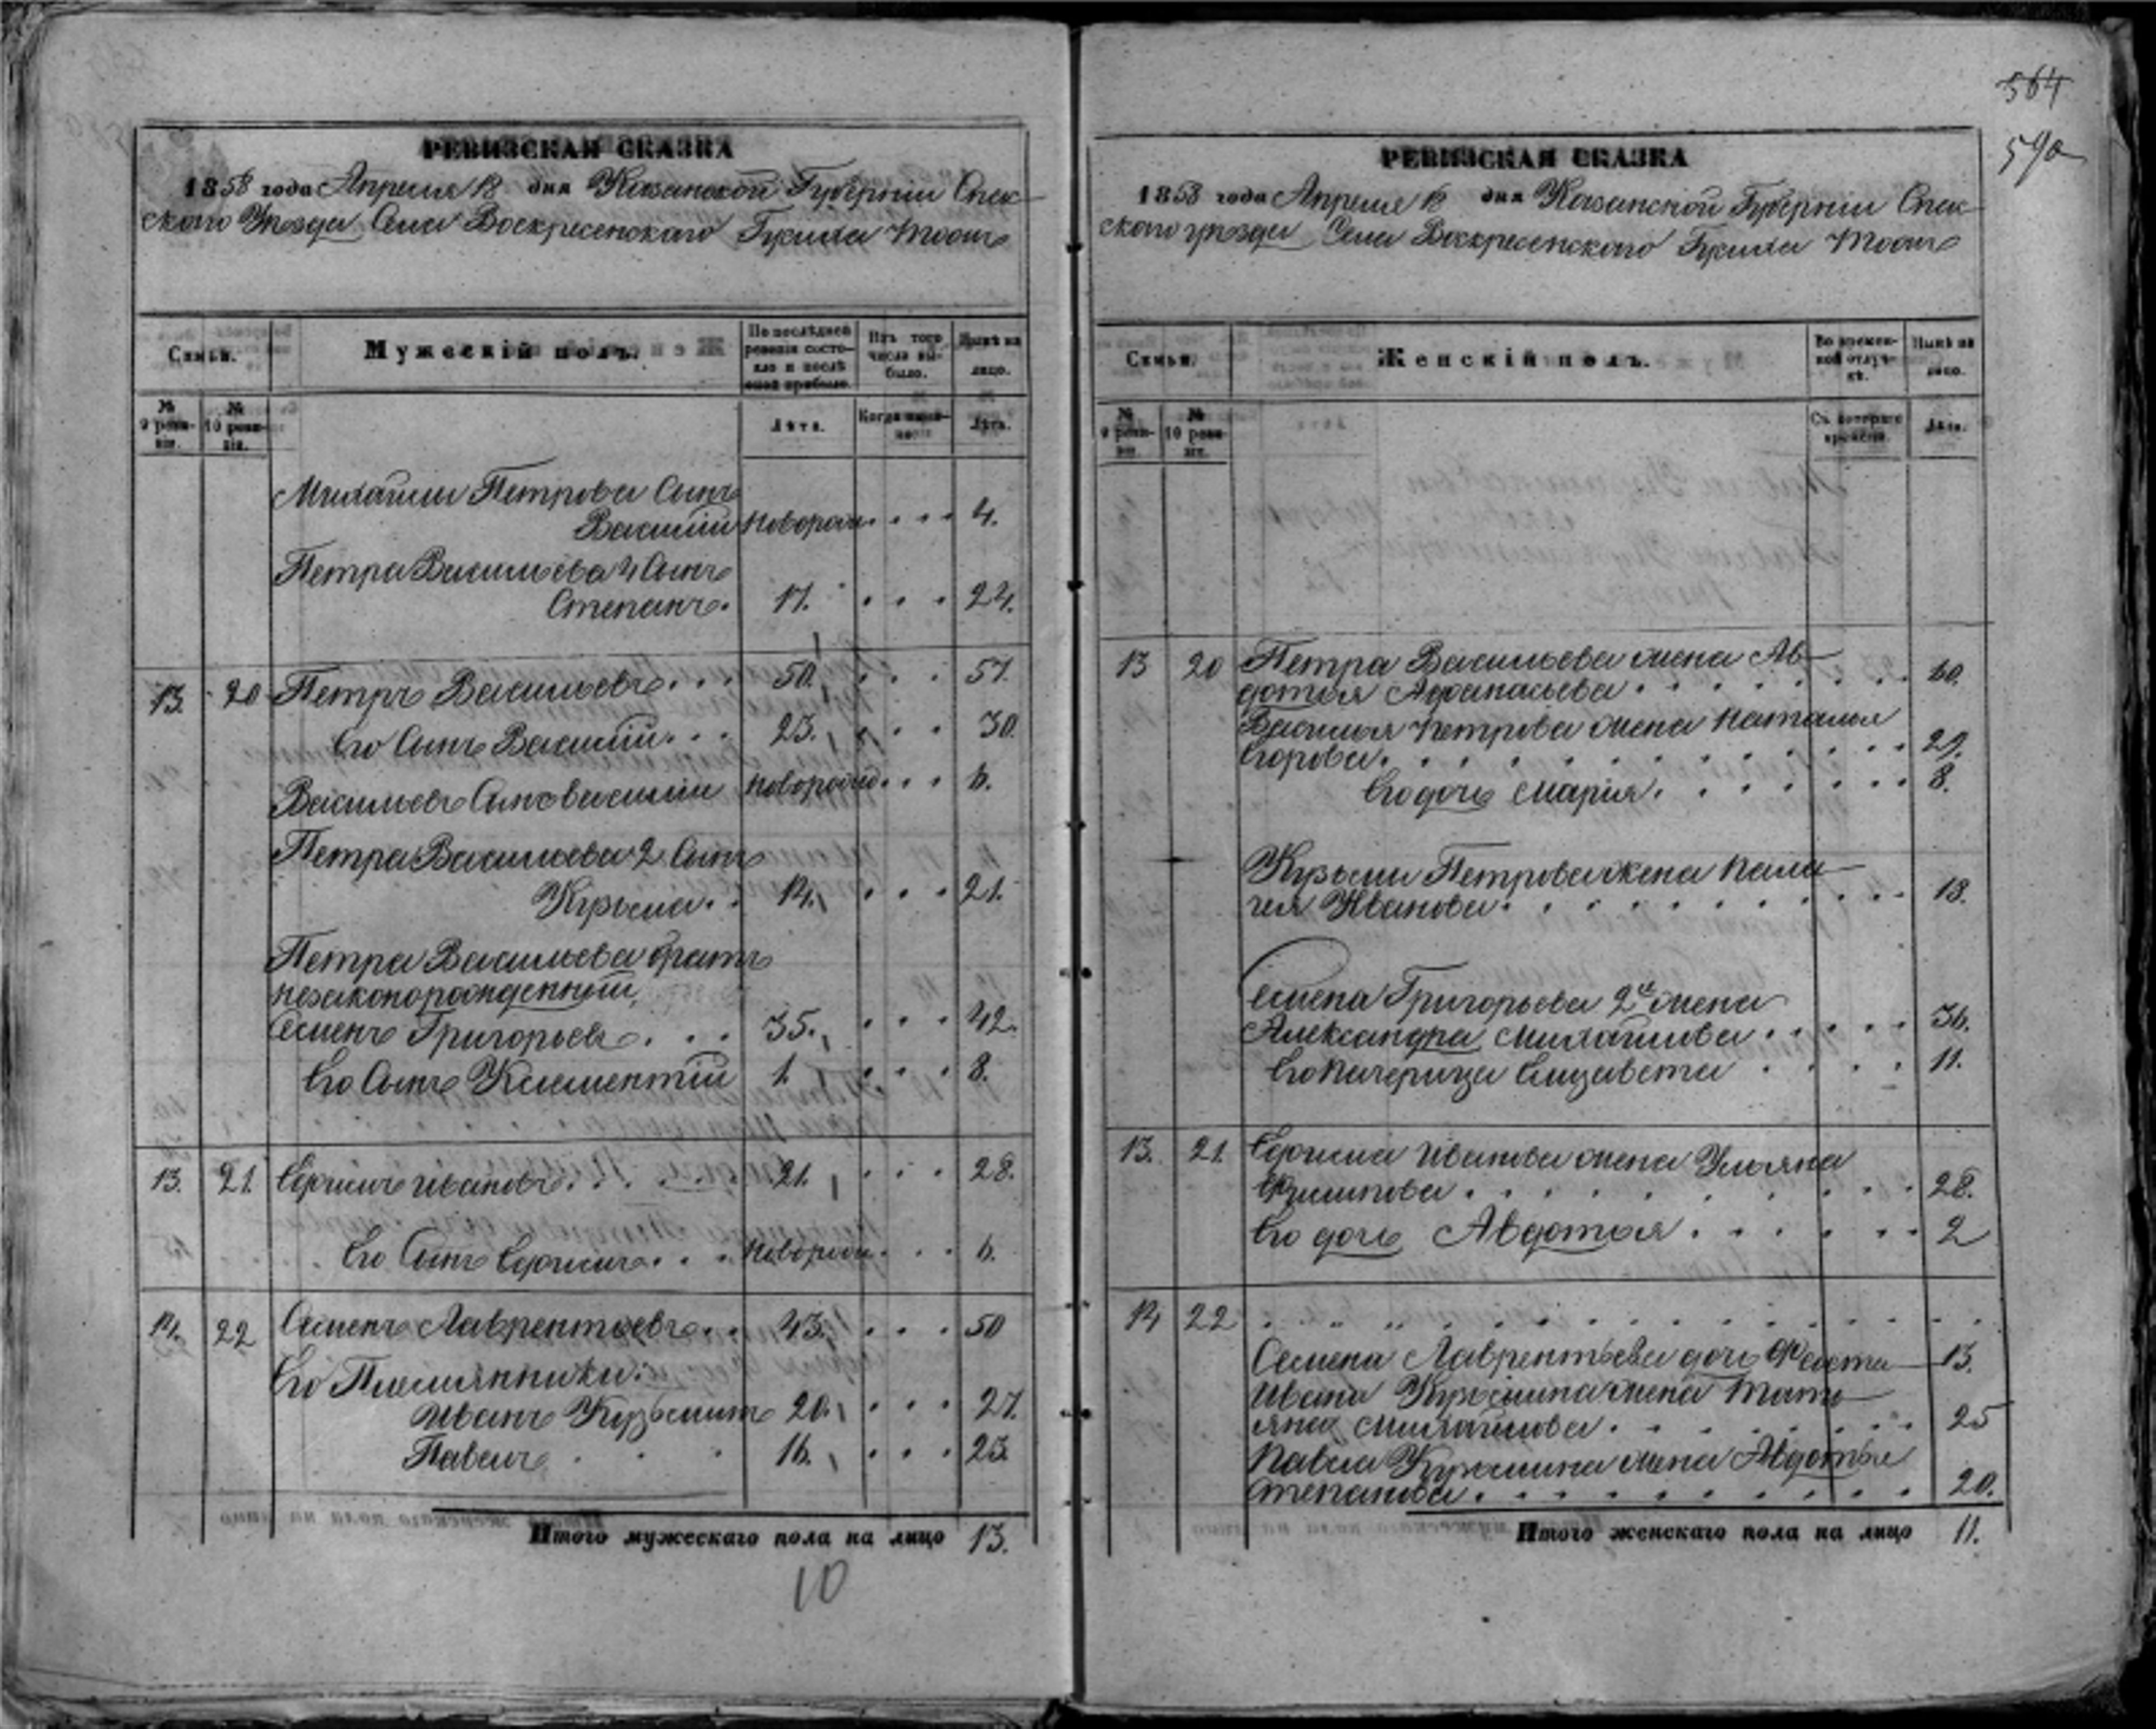 РЕВИЗСКАЯ СКАЗКА
1858 года Апреля 18 дня Казанской Губернiи Спас-
скаго Уезда Села Воскресенскаго тоже
Семьи.
Мужескiй полъ.
По послѣдней ревизiи состояло и послѣ оной прибыло.
Изъ того числа выбыло.
Нынѣ на лицо.
№ 9 ревизiи.
№ 10 ревизiи.
Лѣта.
Когда именно
Лѣта.
Михаилы Петрова Сынъ
Василiй новорожд. 4.
Петра Васильева 4 Сынъ
Степанъ. 17. 24.
13. 20 Петръ Васильевъ 50. 57.
Его Сынъ Василiй 23. 30.
Васильевъ Сынъ Василiй новорожд. 6.
Петра Васильева 2 Сынъ
Кузьма 14. 21.
Петра Васильева братъ
незаконорожденный
Семенъ Григорьевъ 35. 42.
Его Сынъ Клементiй 1. 8.
13. 21. Ивановъ 21. 28.
Его Сынъ новорожд. 6.
14. 22 Семенъ Лаврентьевъ 43. 50
Его Племянники:
Иванъ Кузьминъ 20. 27.
Павелъ 16. 23.
Итого мужескаго пола на лицо 13.
10
564
590
РЕВИЗСКАЯ СКАЗКА
1858 года Апреля 18 дня Казанской Губернiи Спас-
скаго уезда Села Воскресенскаго тоже
Семьи.
Женскiй полъ.
Во временной отлучкѣ.
Нынѣ на лицо.
№ 9 ревизiи.
№ 10 ревизiи.
Съ котораго времени.
Лѣта.
13 20 Петра Васильева жена Ав-
дотья Афанасьева 60.
Василья Петрова жена Наталья
Егорова 29.
Его дочь Марiя 8.
Кузьмы Петрова жена Пела-
гея Иванова 18.
Семена Григорьева 2я жена
Александра Михайлова 36.
Его падчерица Елизавета 11.
13. 21. Иванова жена Ульяна
Филипова 28.
Его дочь Авдотья 2
14 22
Семена Лаврентьева дочь 13.
Ивана Кузьмина жена Тать-
яна Михайлова 25
Павла Кузьмина жена Авдотья
Степанова 20.
Итого женскаго пола на лицо 11.